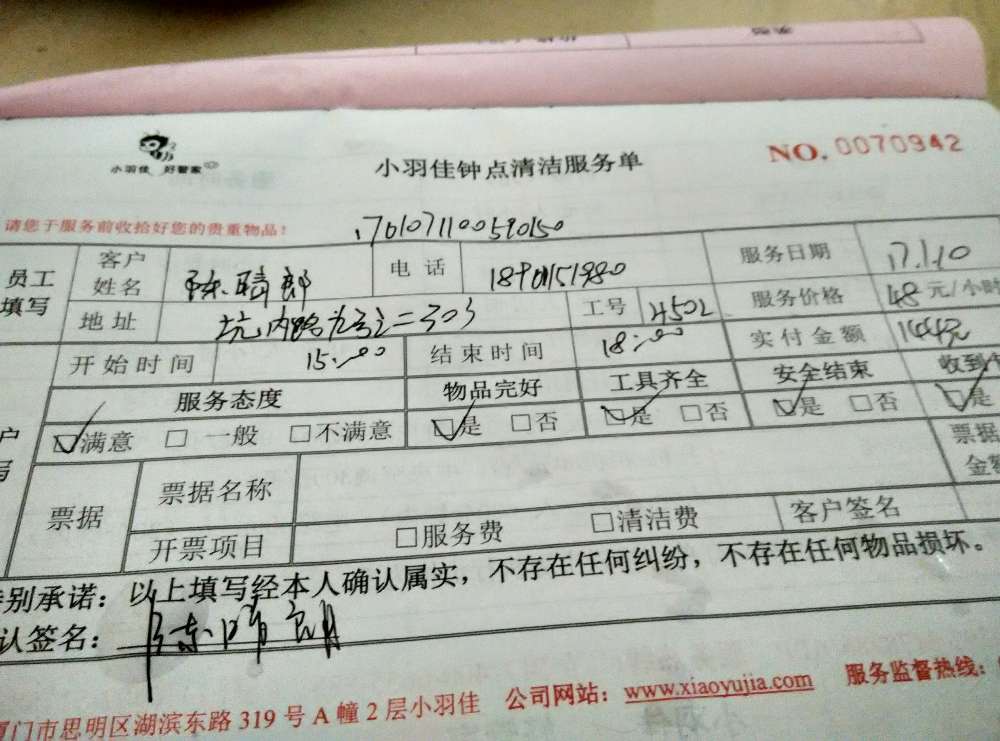 小羽佳 好管家
小羽佳钟点清洁服务单
NO. 0070942
请您于服务前收拾好您的贵重物品！
1701071100590150
员工填写 客户姓名 陈晴郎 电话 18901151980 服务日期 17.1.10
地址 坑内路九号之二303 工号 4502 服务价格 48元/小时
开始时间 15:00 结束时间 18:00 实付金额 144元
服务态度 物品完好 工具齐全 安全结束 收到
☑满意 □一般 □不满意 ☑是 □否 ☑是 □否 ☑是 □否 ☑是
票据 票据名称 票据金
开票项目 □服务费 □清洁费 客户签名
别承诺：以上填写经本人确认属实，不存在任何纠纷，不存在任何物品损坏。
认签名：陈晴
厦门市思明区湖滨东路 319 号 A 幢 2 层小羽佳 公司网站：www.xiaoyujia.com 服务监督热线：